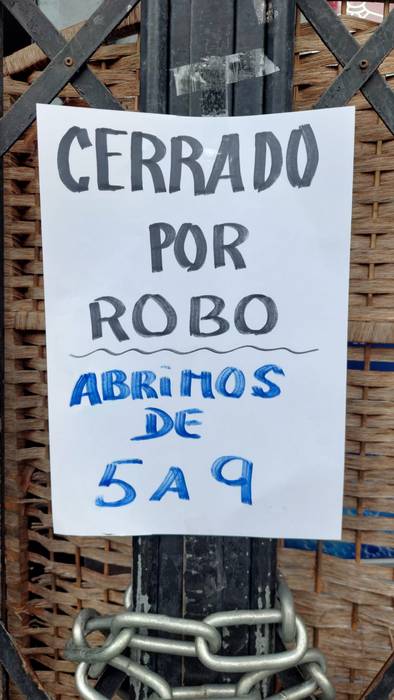 CERRADO
POR
ROBO
ABRiMOS
DE
5 A 9